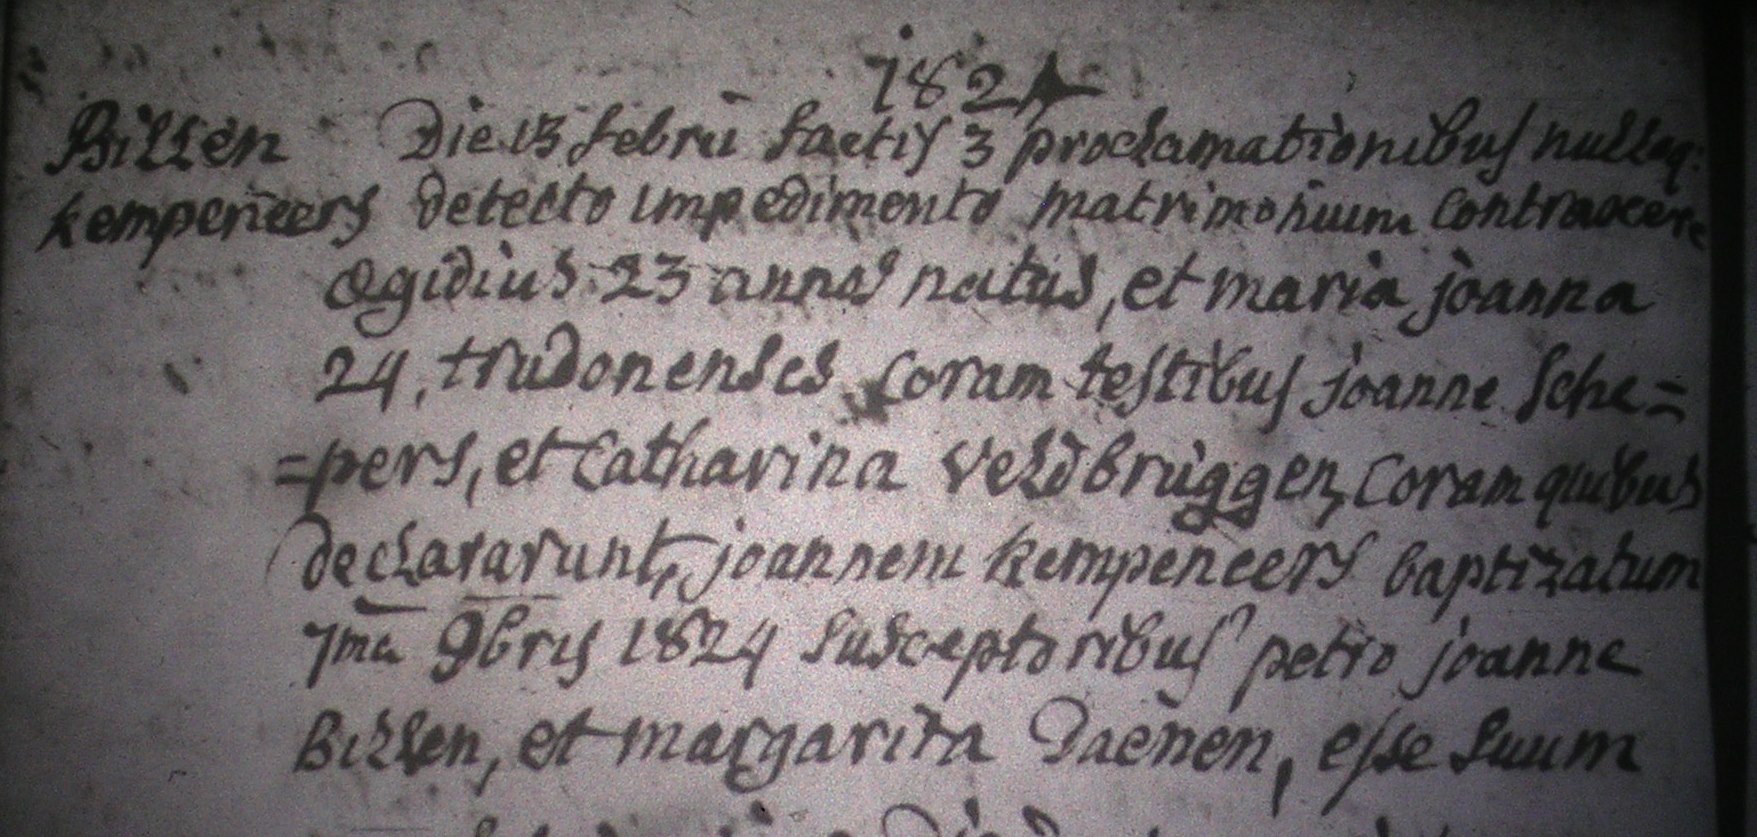 182
Billen Die 13 febru factis 3 proclamationibus nullaq:
kempeneers detecto impedimento matrimonium contraxere
Ægidius 23 annos natus, et maria joanna
24, trudonenses coram testibus joanne Sche=
=pers, et Catharina Veldbruggen, coram quibus
declararunt, joannem kempeneers baptizatum
7ma 9bris 1824 susceptoribus petro joanne
Billen, et margarita Daenen, esse suum